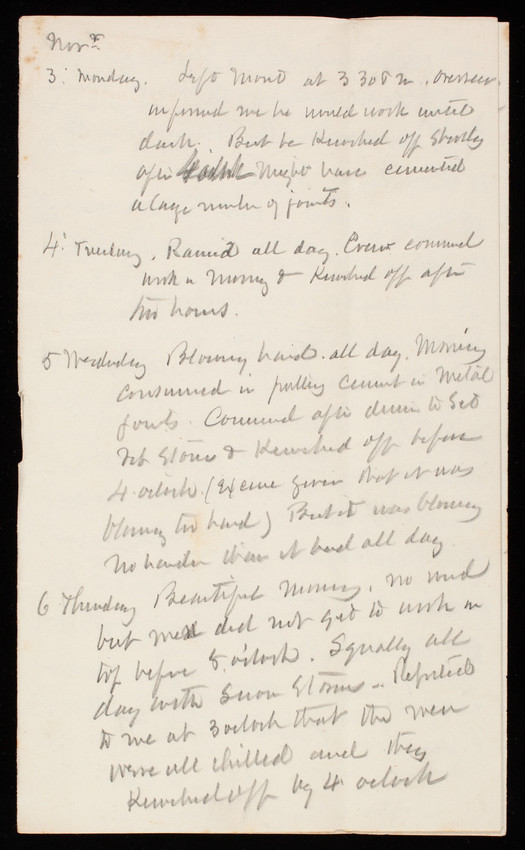 Novr
3. Monday. Left Mont at 3 30 P m. Overseer
informed me he would work until
dark. But he Knocked off Shortly
after Might have cemented
a large number of joints.
4. Tuesday. Rained all day. Crew commenced
work in Morning & Knocked off after
two hours.
5 Wednesday Blowing hard all day. Morning
consumed in putting cement in Metal
joints. Commenced after dinner to Set
Stones & Knocked off before
4 oclock (Excuse given that it was
blowing too hard) But it was blowing
no harder than it had all day
6 Thursday Beautiful Morning, no wind
but men did not get to work on
top before 8 o'clock. Squally all
day with Snow Storms - Reported
to me at 3 oclock that the men
were all chilled and they
Knocked off by 4 oclock